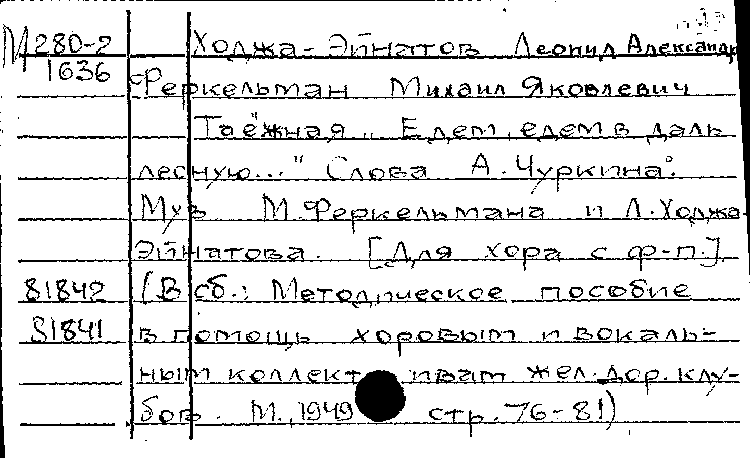 М 280-2 Ходжа-Эйнатов Леонид Александр
1636 Феркельман Михаил Яковлевич
Таёжная „Едем, едем в даль
лесную..." Слова А. Чуркина.
Муз М. Феркельмана и Л. Ходжа-
Эйнатова. [Для хора с ф-п.]
81842 (В сб.: Методическое пособие
81841 в помощь хоровым и вокаль-
ным коллективам жел. дор. клу-
бов. М., 1949 стр. 76-81)